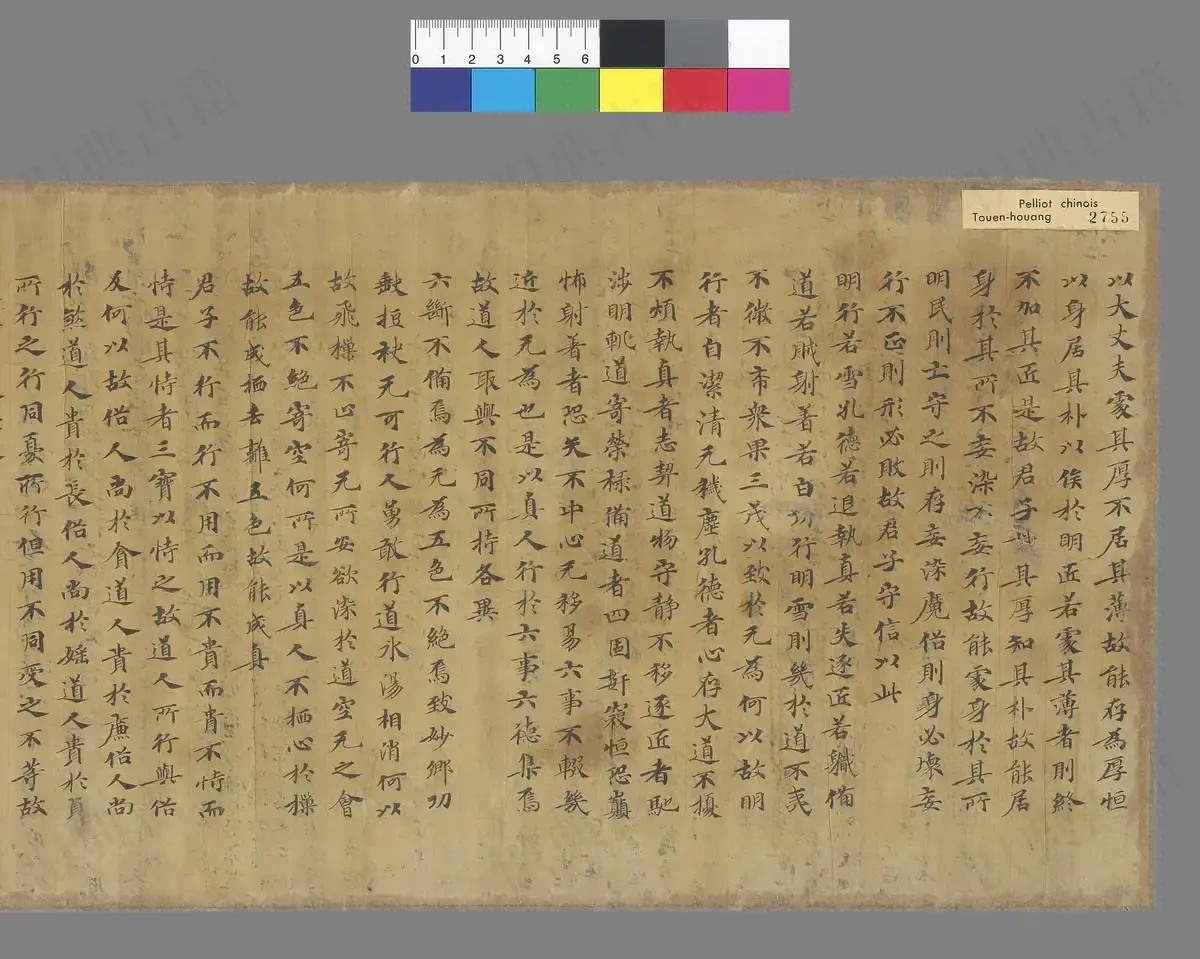 Pelliot chinois
Touen-houang 2755
0 1 2 3 4 5 6
以大丈夫處其厚不居其薄故能存為厚恒
以身居其朴以俟於明匠若處其薄者則終
不加其匠是故君子 其厚知其朴故能居
身於其所不妄染不妄行故能處身於其所
明民則士守之則存妄染魔俗則身必壞妄
行不正則形必敗故君子守信以此
明行若雪孔德若退執真若失逐匠若職備
道若賊射著若白功行明雪則幾於道不夷
不微不希衆果三茂以致於无為何以故明
行者自潔清无穢塵孔德者心存大道不擾
不煩執真者志契道物守静不移逐匠者馳
涉明軌道寄榮祿備道者四固奸寇恒恐巔
怖射著者恐矢不中心无移易六事不輟幾
近於无為也是以真人行於六事六德集焉
故道人取與不同所持各異
六斷不備焉為无為五色不絶焉致妙鄉功
缺短袂无可行人勇敢行道氷湯相消何以
故飛檏不凸寄无所安欲染於道空无之會
五色不絕寄空何所是以真人不栖心於檏
故能成栖去離五色故能成真
君子不行而行不用而用不貴而貴不恃而
恃是其恃者三寶以恃之故道人所行與俗
反何以故俗人尚於貪道人貴於廉俗人尚
於煞道人貴於長俗人尚於婬道人貴於貞
所行之行同憂所行但用不同受之不等故